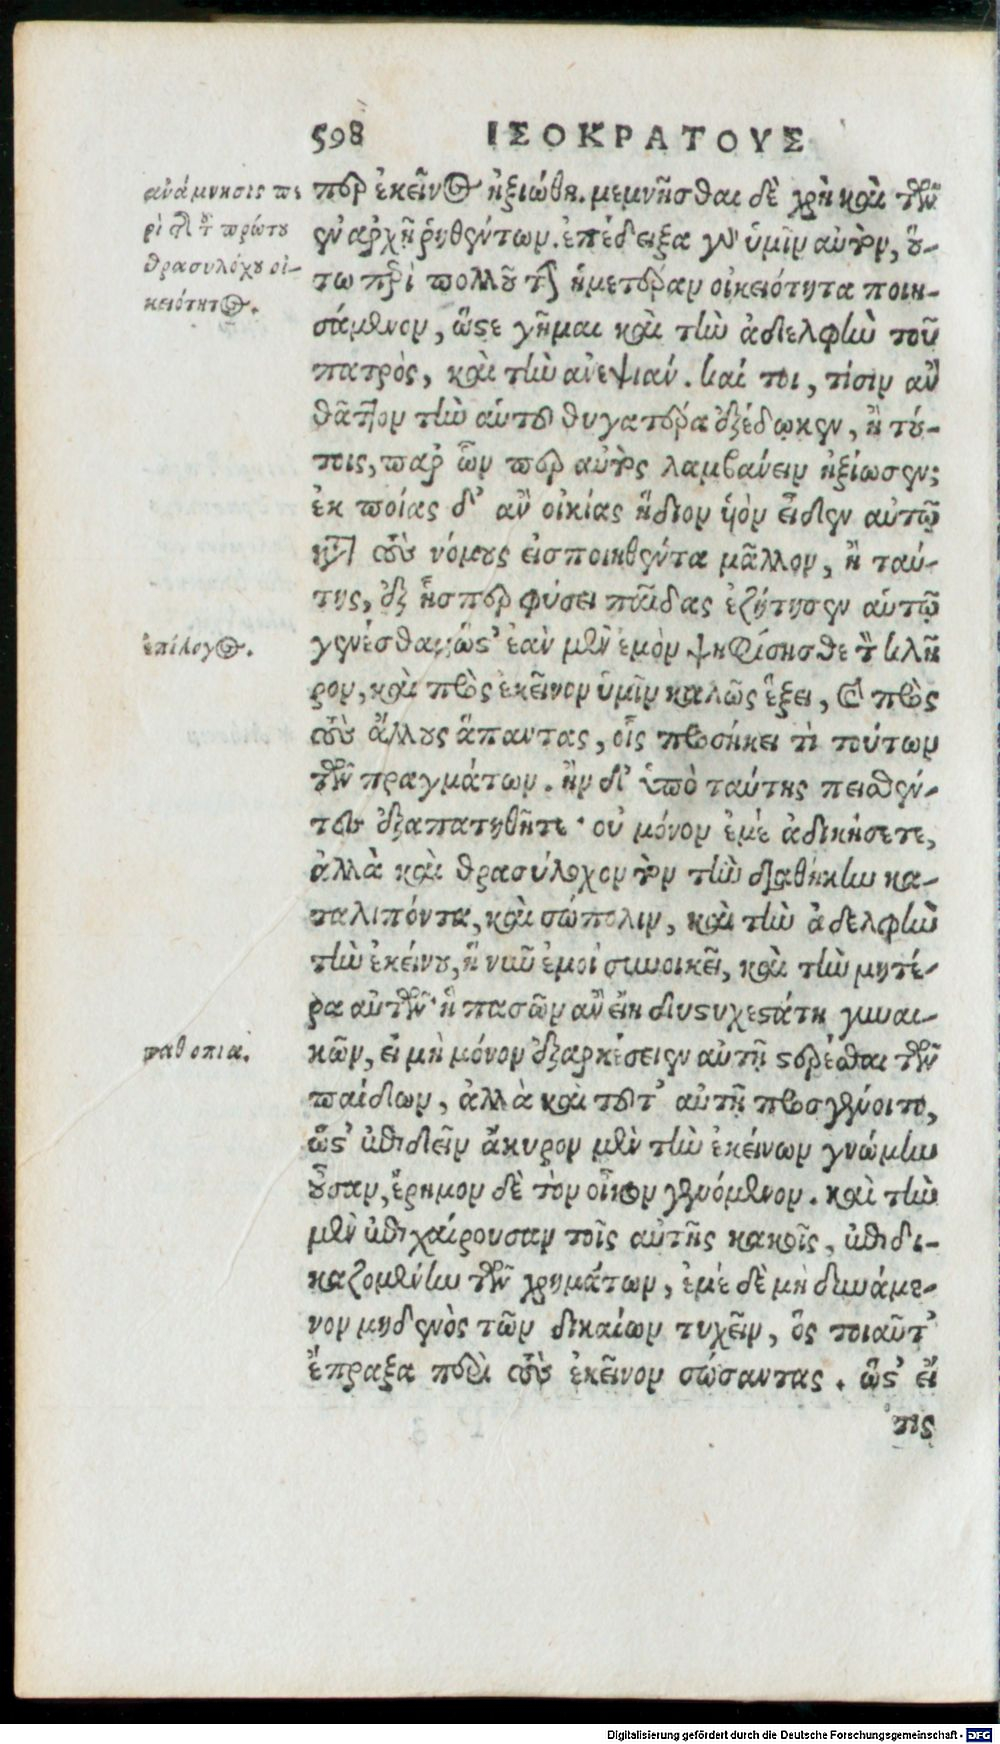 598 ΙΣΟΚΡΑΤΟΥΣ
ἀνάμνησις πε
ρὶ τῆς τοῦ πρώτου
θρασυλόχου οἰ-
κειότητος.
περ ἐκεῖνος ἠξιώθη. μεμνῆσθαι δὲ χρὴ καὶ τῶν
ἐν ἀρχῇ ῥηθέντων. ἐπέδειξα γὰρ ὑμῖν αὐτὸν, οὕ-
τω περὶ πολλοῦ τὴν ἡμετέραν οἰκειότητα ποιη-
σάμενον, ὥστε γῆμαι καὶ τὴν ἀδελφὴν τοῦ
πατρὸς, καὶ τὴν ἀνεψιάν. καί τοι, τίσιν ἂν
θᾶττον τὴν αὑτοῦ θυγατέρα ἐξέδωκεν, ἢ τού-
τοις, παρ' ὧν περ αὐτὸς λαμβάνειν ἠξίωσεν;
ἐκ ποίας δ' ἂν οἰκίας ἥδιον υἱὸν εἶδεν αὑτῷ
κατὰ τοὺς νόμους εἰσποιηθέντα μᾶλλον, ἢ ταύ-
της, ἐξ ἧσπερ φύσει παῖδας ἐζήτησεν αὑτῷ
ἐπίλογος.
γενέσθαι; ὥστ' ἐὰν μὲν ἐμοὶ ψηφίσησθε τὸν κλῆ
ρον, καὶ πρὸς ἐκεῖνον ὑμῖν καλῶς ἕξει, καὶ πρὸς
τοὺς ἄλλους ἅπαντας, οἷς προσήκει τὶ τούτων
τῶν πραγμάτων. ἢν δ' ὑπὸ ταύτης πεισθέν-
τες ἐξαπατηθῆτε· οὐ μόνον ἐμὲ ἀδικήσετε,
ἀλλὰ καὶ θρασύλοχον τὸν τὴν διαθήκην κα-
ταλιπόντα, καὶ σώπολιν, καὶ τὴν ἀδελφὴν
τὴν ἐκείνου, ἣ νῦν ἐμοὶ συνοικεῖ, καὶ τὴν μητέ-
ρα αὐτῶν· ἣ πασῶν ἂν εἴη δυστυχεστάτη γυναι-
παθοποιία.
κῶν, εἰ μὴ μόνον ἐξαρκέσειεν αὐτῇ στρέσθαι τῶν
παίδων, ἀλλὰ καὶ τοῦτ' αὐτῇ προσγένοιτο,
ὥστ' ἐπιδεῖν ἄκυρον μὲν τὴν ἐκείνων γνώμην
οὖσαν, ἔρημον δὲ τὸν οἶκον γενόμενον. καὶ τὴν
μὲν ἐπιχαίρουσαν τοῖς αὐτῆς κακοῖς, ἐπιδι-
καζομένην τῶν χρημάτων, ἐμὲ δὲ μὴ δυνάμε-
νον μηδενὸς τῶν δικαίων τυχεῖν, ὃς τοιαῦτ'
ἔπραξα περὶ τοὺς ἐκεῖνον σώσαντας. ὥστ' εἴ
τις
Digitalisierung gefördert durch die Deutsche Forschungsgemeinschaft - DFG